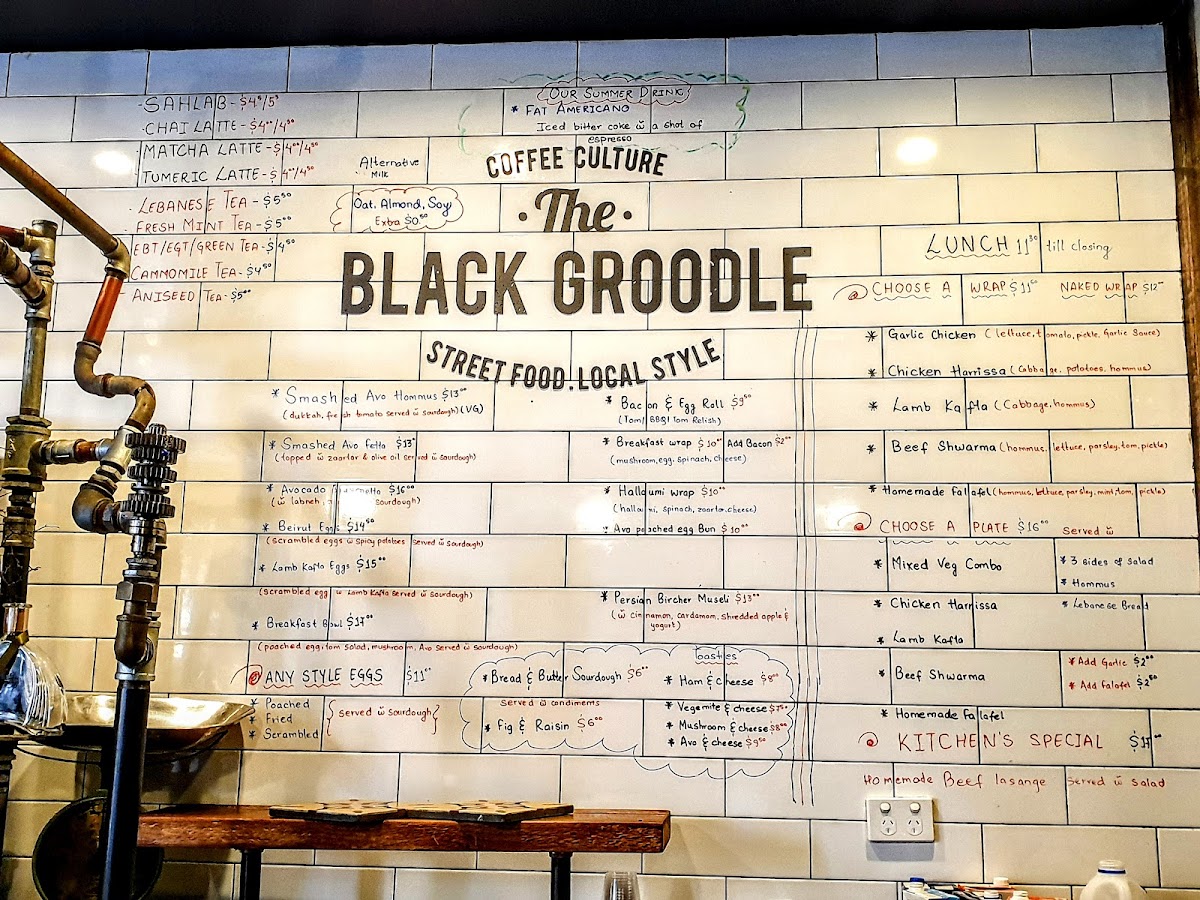 ·SAHLAB-$4⁵/5⁵
·CHAI LATTE-$4⁰⁰/4⁵⁰
·MATCHA LATTE-$4⁰⁰/4⁵⁰
·TUMERIC LATTE-$4⁰⁰/4⁵⁰
·LEBANESE TEA-$5⁵⁰
·FRESH MINT TEA-$5⁵⁰
EBT/EGT/GREEN TEA-$4⁵⁰
CAMMOMILE TEA-$4⁵⁰
·ANISEED TEA-$5⁰⁰
Alternative
Milk
Oat, Almond, Soy
Extra $0.⁵⁰
OUR SUMMER DRINK
* FAT AMERICANO
Iced bitter coke w̃ a shot of
espresso
COFFEE CULTURE
·The·
BLACK GROODLE
STREET FOOD. LOCAL STYLE
* Smashed Avo Hommus $13⁰⁰
(dukkah, fresh tomato served w̃ sourdough) (VG)
* Smashed Avo Fetta $13
(topped w̃ zaartar & olive oil served w̃ sourdough)
* Avocado $16⁰⁰
(w̃ labneh, sourdough)
* Beirut Eggs $14⁵⁰
(scrambled eggs w̃ spicy potatoes served w̃ sourdough)
* Lamb Kafta Eggs $15⁰⁰
(scrambled egg w̃ Lamb Kafta served w̃ sourdough)
* Breakfast Bowl $17⁰⁰
(poached egg, tom salad, mushroom, Avo served w̃ sourdough)
ANY STYLE EGGS $11⁰⁰
* Poached
* Fried
* Scrambled
{served w̃ sourdough}
* Bacon & Egg Roll $9⁵⁰
(Tom/BBQ/Tom Relish)
* Breakfast wrap $10⁰⁰ Add Bacon $2⁰⁰
(mushroom, egg, spinach, cheese)
* Halloumi wrap $10⁰⁰
(halloumi, spinach, zaartar, cheese)
* Avo poached egg Bun $10⁰⁰
* Persian Bircher Museli $13⁰⁰
(w̃ cinnamon, cardamom, shredded apple &
yogurt)
* Bread & Butter Sourdough $6⁰⁰
Served w̃ condiments
* Fig & Raisin $6⁰⁰
Toasties
* Ham & cheese $8⁰⁰
* Vegemite & cheese $7⁵⁰
* Mushroom & cheese $8⁰⁰
* Avo & cheese $9⁵⁰
LUNCH 11³⁰ till closing
CHOOSE A WRAP $11⁰⁰ NAKED WRAP $12⁰⁰
* Garlic Chicken (lettuce, tomato, pickle, Garlic Sauce)
* Chicken Harrissa (Cabbage, potatoes, hommus)
* Lamb Kafta (Cabbage, hommus)
* Beef Shwarma (hommus, lettuce, parsley, tom, pickle)
* Homemade Falafel (hommus, lettuce, parsley, mint, tom, pickle)
CHOOSE A PLATE $16⁰⁰ Served w̃
* Mixed Veg Combo
* Chicken Harrissa
* Lamb Kafta
* Beef Shwarma
* Homemade Falafel
* 3 sides of Salad
* Hommus
* Lebanese Bread
* Add Garlic $2⁰⁰
* Add Falafel $2⁵⁰
KITCHEN'S SPECIAL $17⁰⁰
Homemade Beef lasange served w̃ salad